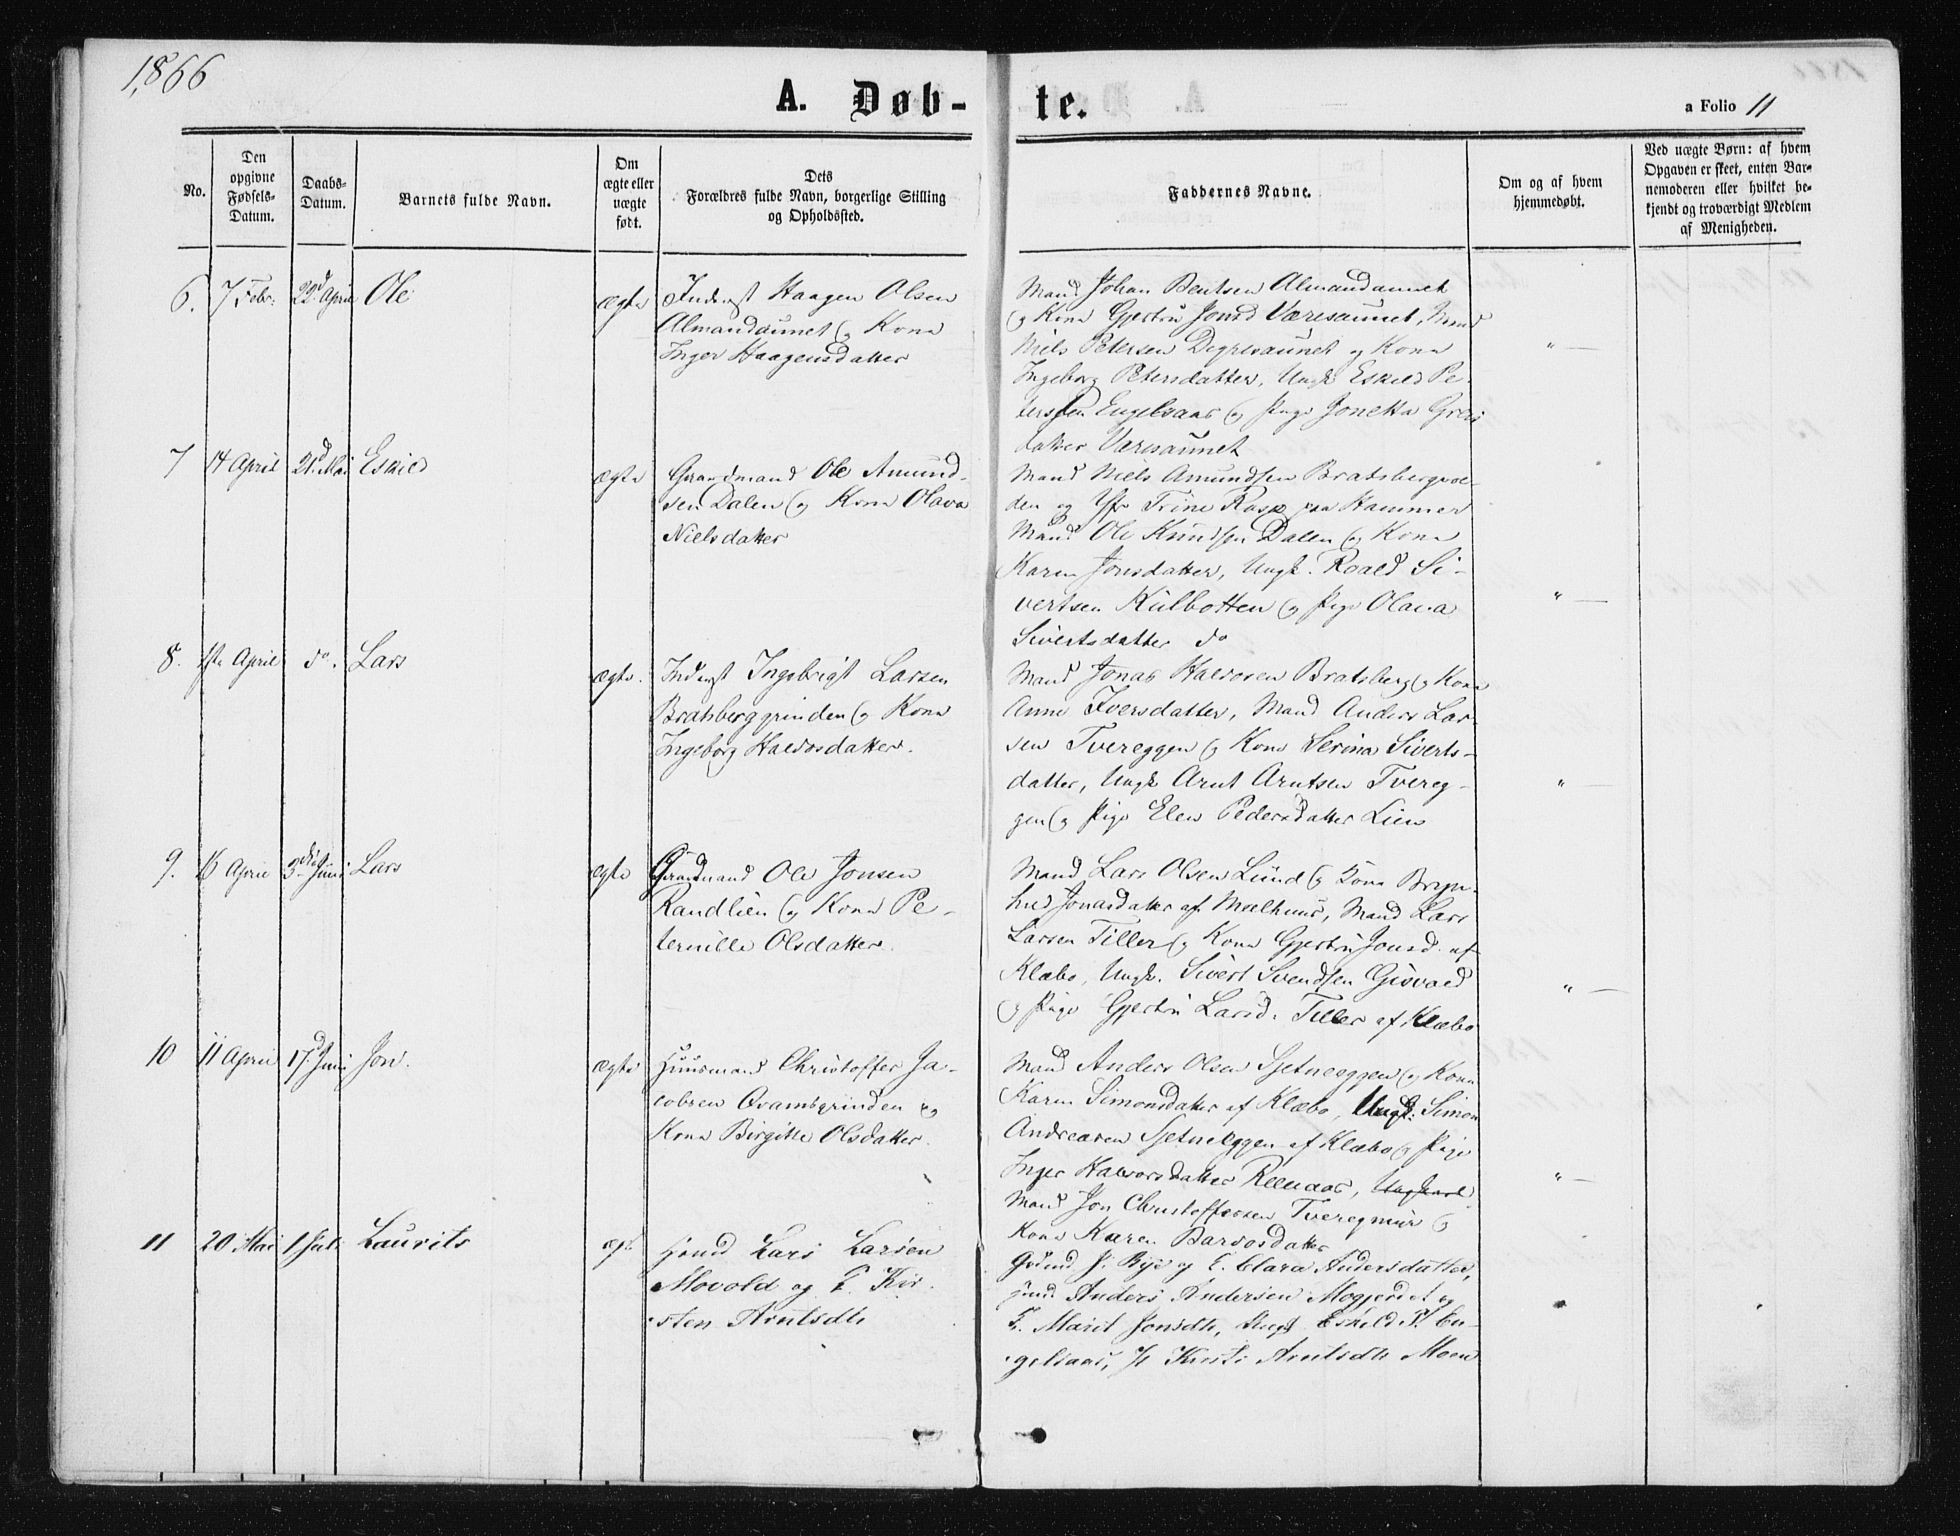 1866
A. Døb-
te.
a Folio 11
No.
Den
opgivne
Fødsels-
Datum.
Daabs-
Datum.
Barnets fulde Navn.
Om
ægte eller
uægte
født.
Dets
Forældres fulde Navn, borgerlige Stilling
og Opholdssted.
Faddernes Navne.
Om og af hvem
hjemmedøbt.
Ved uægte Børn: af hvem
Opgaven er skeet, enten Bar-
nemoderen eller hvilket be-
kjendt og troværdigt Medlem
af Menigheden.
6. 7 Febr. 22d April Ole ægte
Inderst Haagen Olsen
Almandaunet og Kone
Inger Haagensdatter
Mand Johan Bentsen Almandaunet
og Kone Gjertru Jonsd Væresaunet, Mand
Niels Petersen Digresaunet og Kone
Ingeborg Petersdatter, Ungk Eskild Pe-
tersen Engelsaas og Pige Jonetta
datter Væresaunet
" —
7 14 April 21d Mai Eskild ægte
Gaardmand Ole Amund-
sen Dalen og Kone Olava
Nielsdatter
Mand Niels Amundsen Bratsbergvol-
den og Jfr Trine Rasp paa Hammer
Mand Ole Knudsen Dalen og Kone
Karen Jonsdatter, Ungk. Roald Si-
vertsen Kulbotten og Pige Olava
Sivertsdatter do
" —
8. 1ste April do. Lars ægte.
Inderst Ingebrigt Larsen
Bratsberggrinden og Kone
Ingeborg Halvosdatter.
Mand Jonas Halvorsen Bratsberg og Kone
Anne Iversdatter, Mand Anders Lar-
sen Tvereggen og Kone Serina Siverts-
datter, Ungk Arnt Arntsen Tvereg-
gen og Pige Elen Pedersdatter Lien
" —
9. 16 April 3die Juni Lars ægte
Gaardmand Ole Jonsen
Randlien og Kone Pe-
ternille Olsdatter.
Mand Lars Olsen Lund og Kone Bryn-
hild Jonasdatter af Melhuus, Mand Lars
Larsen Tiller og Kone Gjertru Jonsd. af
Klæbo, Ungk. Sivert Svendsen Gisvold
og Pige Gjertru Larsd. Tiller af Klæbo
" —
10 11 April 17d Juni Jon. ægte
Huusmand Christoffer Ja-
cobsen Qvambgrinden og
Kone Birgitte Olsdatter.
Mand Anders Olsen Sjetneeggen og Kone
Karen Simonsdatter af Klæbo, Ungk. Simon
Andreasen Sjetneeggen af Klæbo og Pige
Inger Halvorsdatter Reenaas,
Mand Jon Christoffersen Tveregmur og
Kone Karen Barvosdatter
" —
11 20 Mai 1 Juli Laurits ægt.
Lars Larsen
Movold og E. Kir-
sten Arntsdtr
J. Rye og E. Clara Andersdatter,
Anders Andersen Mogjerdet og
E. Marit Jonsdtr, Ungk Eskild P. En-
gelsaas, P. Kirsti Arntsdtr Moen